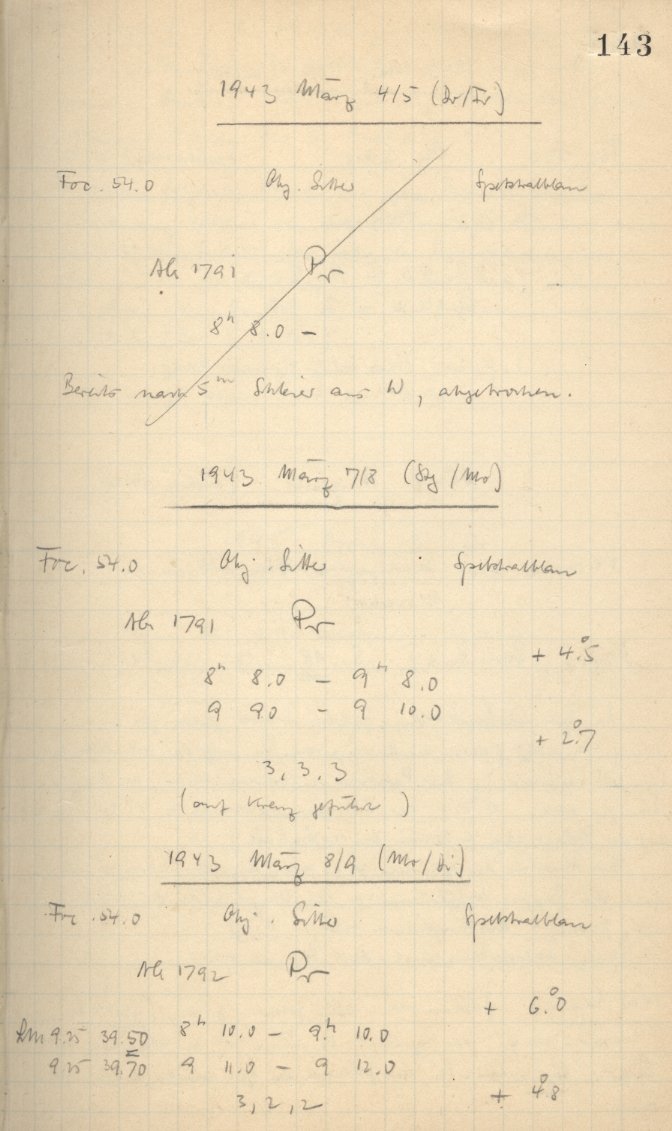 143
1943 März 4/5 (Do/Fr)
Foc. 54.0 Obj. Gitter Spektralblau
Ab 1791 Pr
8h 8.0 –
Bereits nach 5m Schleier aus W, abgebrochen.
1943 März 7/8 (Stg/Mo)
Foc. 54.0 Obj. Gitter Spektralblau
Ab 1791 Pr
+ 4°.5
8h 8.0 – 9h 8.0
9 9.0 – 9 10.0
+ 2°.7
3, 3, 3
(auf Kreuz geführt)
1943 März 8/9 (Mo/Di)
Foc. 54.0 Obj. Gitter Spektralblau
Ab 1792 Pr
+ 6°.0
9.25 39.50 8h 10.0 – 9h 10.0
9.25 39.70 9 11.0 – 9 12.0
3, 2, 2 + 4°.8